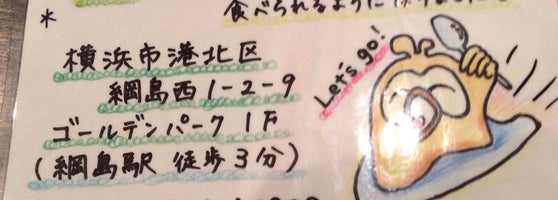 食べられるように
*
横浜市港北区
綱島西1-2-9
ゴールデンパーク1F
(綱島駅 徒歩3分)
Let's go!